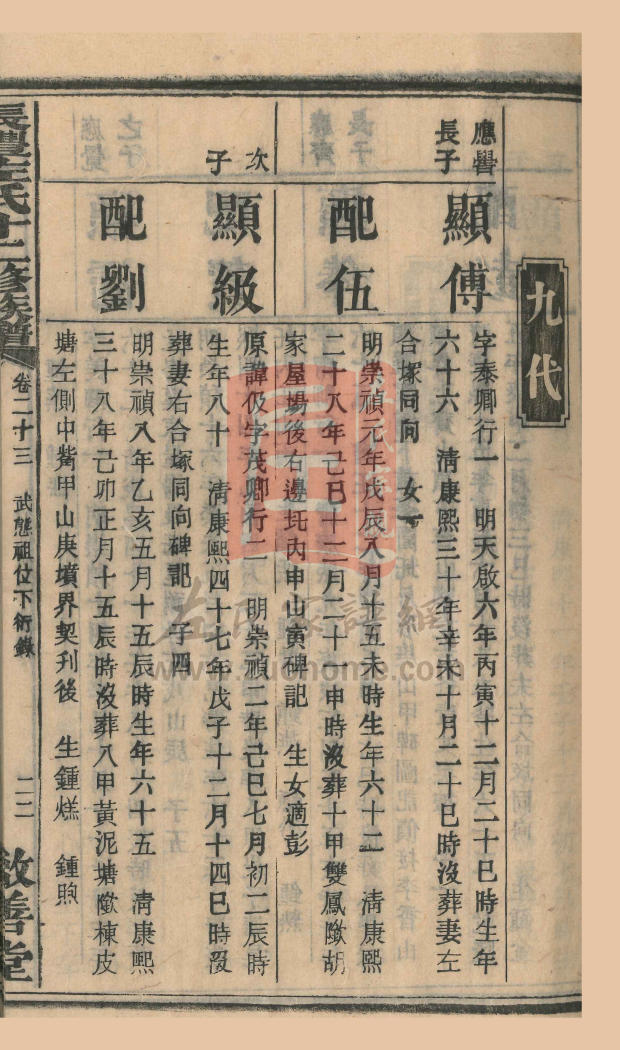 九代
應嚳
長子
顯傅
字泰卿行一　明天啟六年丙寅十二月二十巳時生年
六十六　清康熙三十年辛未十月二十巳時沒葬妻左
合塚同向　女一
配伍
明崇禎元年戊辰八月十五未時生年六十二　清康熙
二十八年己巳十二月二十一申時沒葬十甲雙鳳𨻶胡
家屋場後右邊圫丙申山寅碑記　生女適彭
次
子
顯級
原諱伋字茂卿行二　明崇禎二年己巳七月初二辰時
生年八十　清康熙四十七年戊子十二月十四巳時沒
葬妻右合塚同向碑記　子四
配劉
明崇禎八年乙亥五月十五辰時生年六十五　清康熙
三十八年己卯正月十五辰時沒葬八甲黃泥塘𨻶棟皮
塘左側中觜甲山庚墳界契刋後　生鍾烑　鍾煦
長澧左氏十二修族譜
卷二十三　武態祖位下衍錄
二二
敦善堂
左氏家譜網
www.zuohome.com